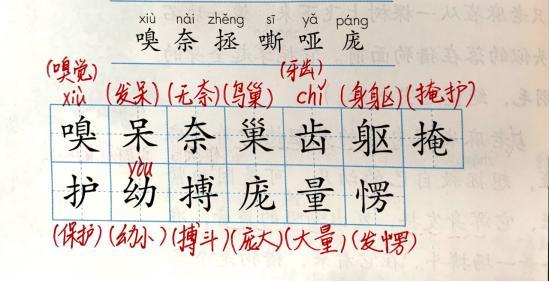 xiù nài zhěng sī yǎ páng
嗅 奈 拯 嘶 哑 庞
(嗅觉) (牙齿)
xiù (发呆) (无奈) (鸟巢) chǐ (身躯) (掩护)
嗅 呆 奈 巢 齿 躯 掩
yòu
护 幼 搏 庞 量 愣
(保护) (幼小) (搏斗) (庞大) (大量) (发愣)